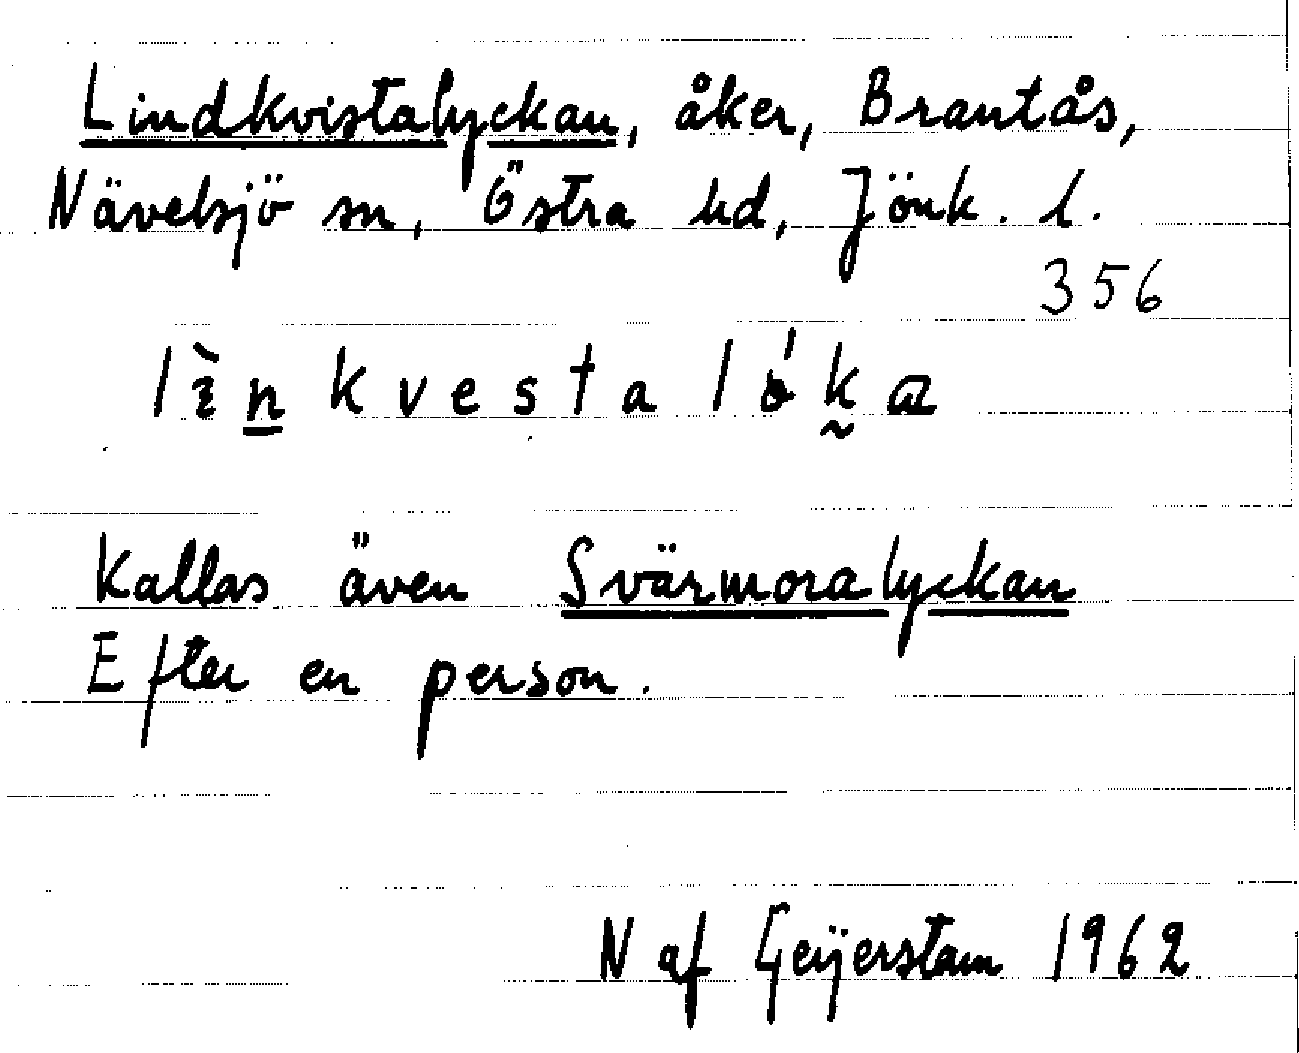 Lindkvistalyckan, åker, Brantås,
Nävelsjö sn, Östra hd, Jönk. l.
356
Kallas även Svärmoralyckan
Efter en person.
N af Geijerstam 1962